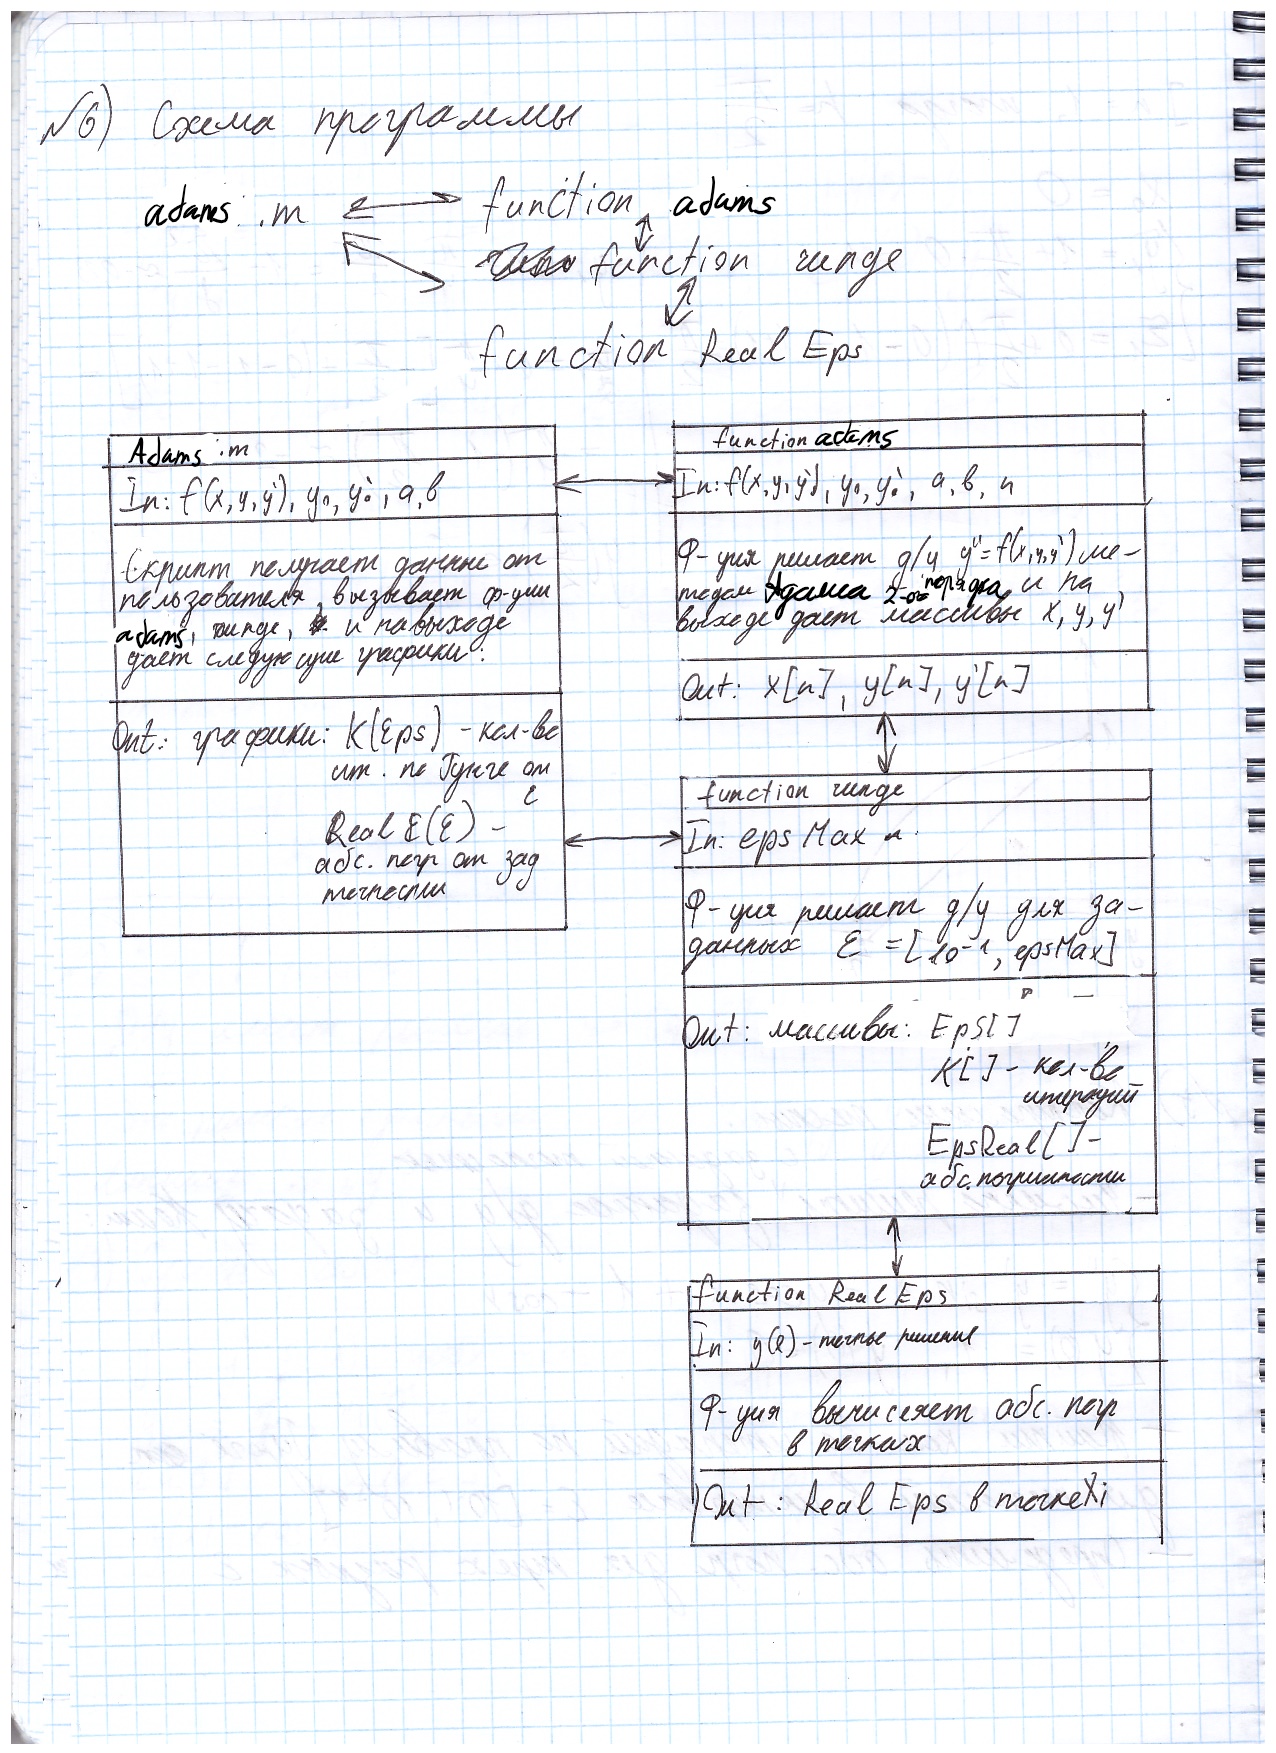 №6) Схема программы
adams .m function adams
function runge
function Real Eps
Adams .m
In: f(x, y, y'), y₀, y₀', a, b
Скрипт получает данные от
пользователя, вызывает ф-ции
adams, runge, и на выходе
дает следующие графики:
Out: графики: K(Eps) - кол-во
ит. по Рунге от
ε
Real ε(ε) -
абс. погр от зад
точности
function adams
In: f(x, y, y'), y₀, y₀', a, b, n
Ф-ция решает д/у y''=f(x,y,y') ме-
тодом Адамса 2-ого порядка и на
выходе дает массивы x, y, y'
Out: x[n], y[n], y'[n]
function runge
In: eps Max
Ф-ция решает д/у для за-
данных ε = [10⁻¹, epsMax]
Out: массивы: Eps[]
K[] - кол-во
итераций
EpsReal[] -
абс. погрешности
function Real Eps
In: - точное решение
Ф-ция вычисляет абс. погр
в точках
Out: Real Eps в точке Xi